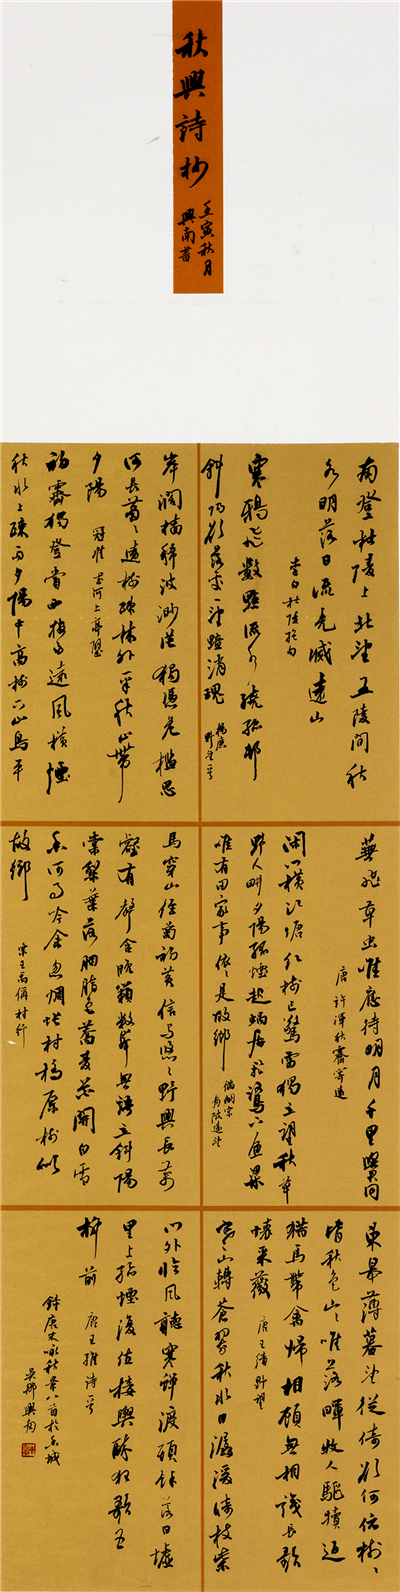 秋興詩抄
壬寅秋月
興南書
南登杜陵上北望五陵間秋
水明落日流光滅遠山
李白杜陵絕句
寒鴉飛數點流水繞孤邨
斜陽欲落處一望黯消魂
楊廣
野望一首
岸闊檣稀波渺茫獨憑危檻思
何長蕭〻遠樹疎林外一半秋山帶
夕陽 寇準書河上亭壁
初霽獨登賞西樓多遠風橫煙
秋水上疎雨夕陽中高樹下山鳥平
蕪飛草虫唯應待明月千里與君同
唐許渾秋霽寄遠
閑門橫江塘紅樹已驚霜獨立望秋草
野人畊夕陽孤煙起蝸居飛鷺下魚梁
唯有田家事依〻是故鄉
儲嗣宗
南陂遠望
馬穿山徑菊初黃信馬悠〻野興長萬
壑有聲含晚籟數峰無語立斜陽
棠梨葉落胭脂色蕎麥花開白雪
香何事吟余忽惆悵村橋原樹似
故鄉
宋王禹偁村行
東皋薄暮望徙倚欲何依樹〻
皆秋色山〻唯落暉牧人驅犢返
獵馬帶禽歸相顧無相識長歌
懷采薇 唐王績野望
寒山轉蒼翠秋水日潺湲倚杖柴
門外臨風聽寒蟬渡頭餘落日墟
里上孤煙復值接輿醉狂歌五
柳前 唐王維詩一首
錄唐宋咏秋景八首於 城
吳鄉興南